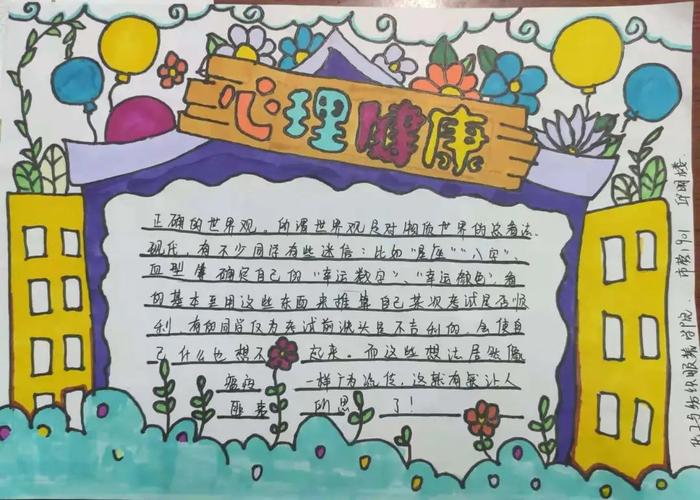 心理健康
正确的世界观。所谓世界观是对物质世界的总看法.
现代,有不少同学有些迷信:比如"星座""八字",
血型等确定自己的"幸运数字"、"幸运颜色",有
的基本至用这些东西来推算自己某次考试是否顺
利,有的同学仅为考试前
不吉利的,会使自
己什么也想不起来。而这些想法居然像
瘟疫一样广为流传,这就有氣让人
匪夷所思了!
化工与纺织服装学院